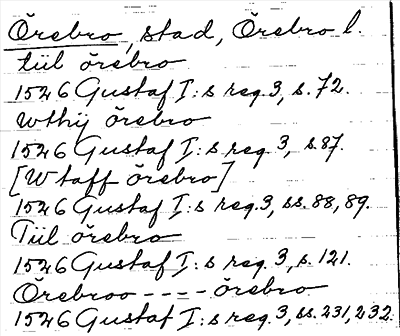 Örebro, stad, Örebro l.
tiil örebro
1526 Gustaf I:s reg. 3, s. 72.
wthij örebro
1526 Gustaf I:s reg. 3, s. 87.
[W taff örebro]
1526 Gustaf I:s reg. 3, ss. 88, 89.
Tiil örebro
1526 Gustaf I:s reg. 3, s. 121.
Örebroo - - - - örebro
1526 Gustaf I:s reg. 3, ss. 231, 232.